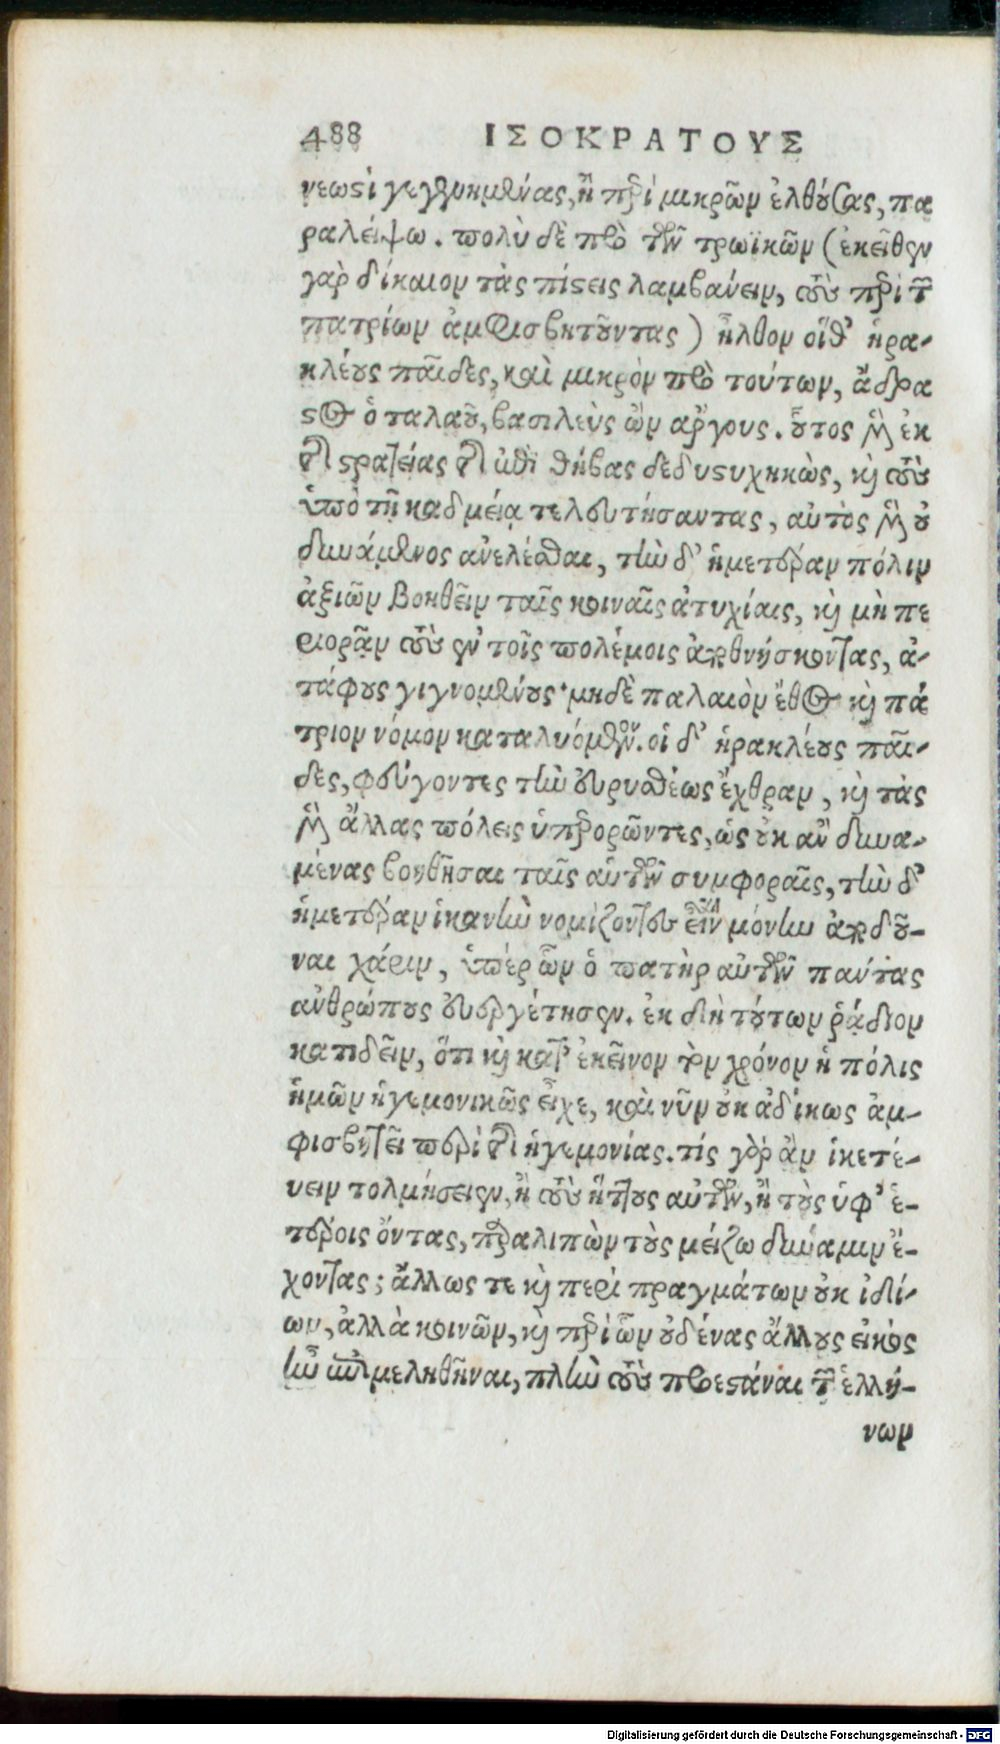 488 ΙΣΟΚΡΑΤΟΥΣ
νεωστὶ γεγενημένας, ἢ περὶ μικρῶν ἐλθούσας, πα
ραλείψω. πολὺ δὲ πρὸ τῶν τρωϊκῶν (ἐκεῖθεν
γὰρ δίκαιον τὰς πίστεις λαμβάνειν, τοὺς περὶ τῶν
πατρίων ἀμφισβητοῦντας) ἦλθον οἵθ' ἡρα-
κλέους παῖδες, καὶ μικρὸν πρὸ τούτων, ἄδρα
στος ὁ ταλαοῦ, βασιλεὺς ὢν ἄργους. οὗτος μὲν ἐκ
τῆς στρατείας τῆς ἐπὶ θήβας δεδυστυχηκὼς, καὶ τοὺς
ὑπὸ τῇ καδμείᾳ τελευτήσαντας, αὐτὸς μὲν οὐ
δυνάμενος ἀνελέσθαι, τὴν δ' ἡμετέραν πόλιν
ἀξιῶν βοηθεῖν ταῖς κοιναῖς ἀτυχίαις, καὶ μὴ πε
ριορᾶν τοὺς ἐν τοῖς πολέμοις ἀποθνήσκοντας, ἀ-
τάφους γιγνομένους· μηδὲ παλαιὸν ἔθος καὶ πά
τριον νόμον καταλυόμενον. οἱ δ' ἡρακλέους παῖ-
δες, φεύγοντες τὴν εὐρυσθέως ἔχθραν, καὶ τὰς
μὲν ἄλλας πόλεις ὑπερορῶντες, ὡς οὐκ ἂν δυνα-
μένας βοηθῆσαι ταῖς αὑτῶν συμφοραῖς, τὴν δ'
ἡμετέραν ἱκανὴν νομίζοντες εἶναι μόνην ἀποδοῦ-
ναι χάριν, ὑπὲρ ὧν ὁ πατὴρ αὐτῶν πάντας
ἀνθρώπους εὐεργέτησεν. ἐκ δὴ τούτων ῥᾴδιον
κατιδεῖν, ὅτι καὶ κατ' ἐκεῖνον τὸν χρόνον ἡ πόλις
ἡμῶν ἡγεμονικῶς εἶχε, καὶ νῦν οὐκ ἀδίκως ἀμ-
φισβητεῖ περὶ τῆς ἡγεμονίας. τίς γὰρ ἂν ἱκετέ-
υειν τολμήσειεν, ἢ τοὺς ἥττους αὐτῶν, ἢ τοὺς ὑφ' ἑ-
τέροις ὄντας, παραλιπὼν τοὺς μείζω δύναμιν ἔ-
χοντας; ἄλλως τε καὶ περὶ πραγμάτων οὐκ ἰδί-
ων, ἀλλὰ κοινῶν, καὶ περὶ ὧν οὐδένας ἄλλους εἰκὸς
ἦν ἐπιμεληθῆναι, πλὴν τοὺς προεστάναι τῶν ἑλλή-
νων
Digitalisierung gefördert durch die Deutsche Forschungsgemeinschaft - DFG